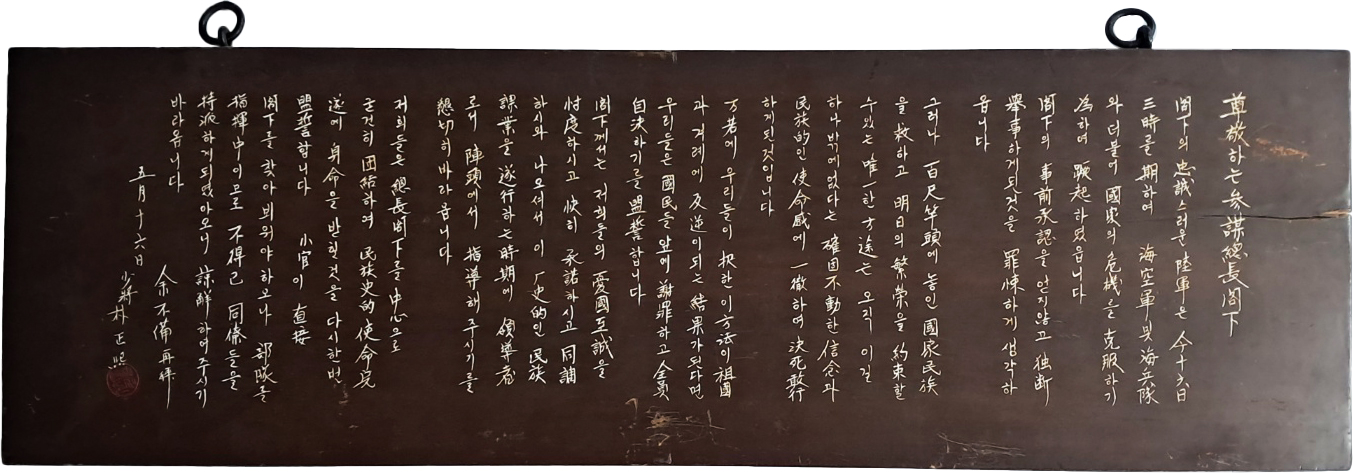 尊敬하는 參謀總長閣下
閣下의 忠誠스러운 陸軍은 今十六日
三時를 期하여 海空軍 및 海兵隊
와 더불어 國家의 危機를 克服하기
為하여 蹶起하였읍니다
閣下의 事前承認을 얻지않고 独断
擧事하게된것을 罪悚하게 생각하
옵니다
그러나 百尺竿頭에 놓인 國家民族
을 救하고 明日의 繁榮을 約束할
수있는 唯一한 方途는 오직 이길
하나밖에없다는 確固不動한 信念과
民族的인 使命感에 一徹하여 決死敢行
하게된것입니다
万若에 우리들이 択한 이方法이 祖國
과 겨레에 反逆이되는 結果가된다면
우리들은 國民들 앞에 謝罪하고 全員
自決하기를 盟誓합니다
閣下께서는 저희들의 憂國至誠을
忖度하시고 快히 承諾하시고 同調
하시와 나오셔서 이 歷史的인 民族
課業을 遂行하는 時期에 領導者
로서 陣頭에서 指導해 주시기를
懇切히 바라옵니다
저희들은 總長閣下를 中心으로
굳건히 団結하여 民族史的 使命完
遂에 身命을 받칠것을 다시한번
盟誓합니다 小官이 直接
閣下를 찾아 뵈워야하오나 部隊를
指揮中이므로 不得已 同僚들을
特派하게되였아오니 諒解하여주시기
바라옵니다
余不備再拜
五月十六日
少將 朴正熙